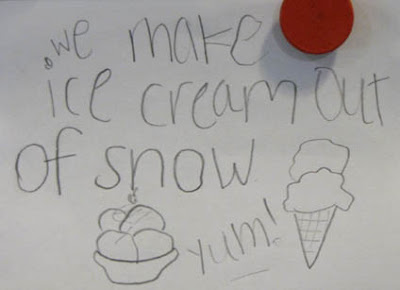 we make
ice cream out
of snow
yum!